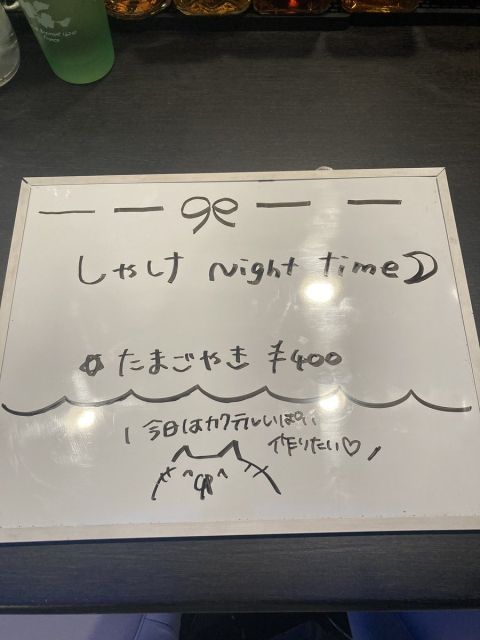 しゃけ Night Time
たまごやき ¥400
今日はカクテルいっぱい
作りたい♡